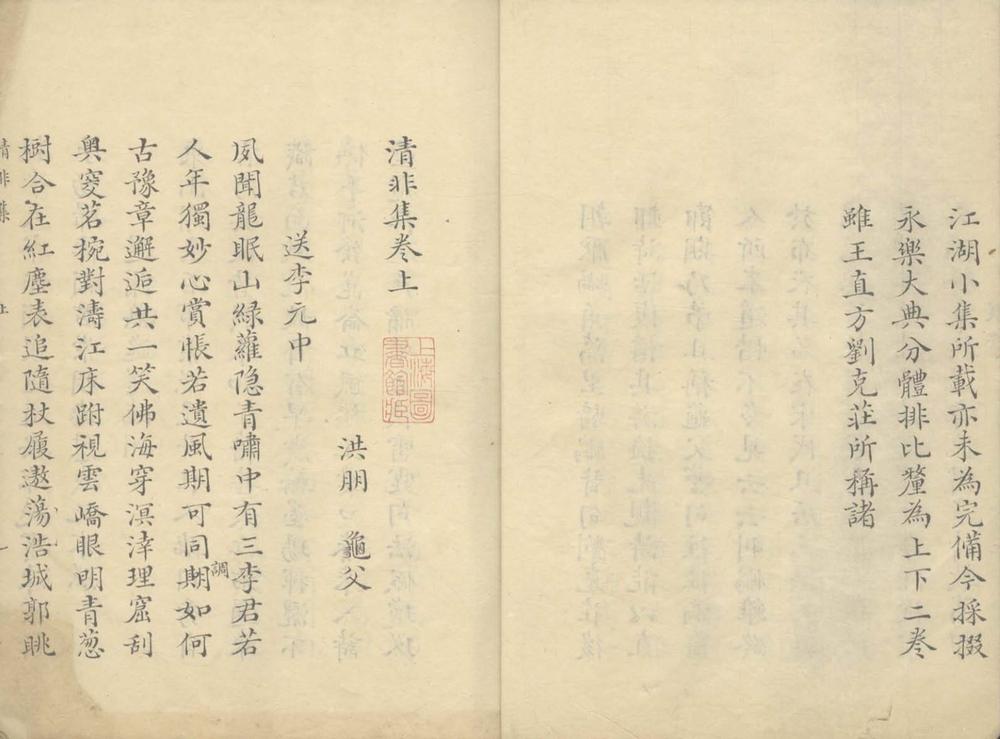 江湖小集所載亦未為完備今採掇
永樂大典分體排比釐為上下二卷
雖王直方劉克莊所稱諸
清非集卷上
洪朋 龜父
送李元中
夙聞龍眠山綠蘿隐青嘯中有三李君若
人年獨妙心賞悵若遺風期可同期如何
調
古豫章邂逅共一笑佛海穿溟涬理窟刮
奥窔茗椀對濤江床跗視雲嶠眼明青葱
樹合在紅塵表追隨杖屨遨蕩浩城郭眺
清非集 上 一
上海圖書館藏